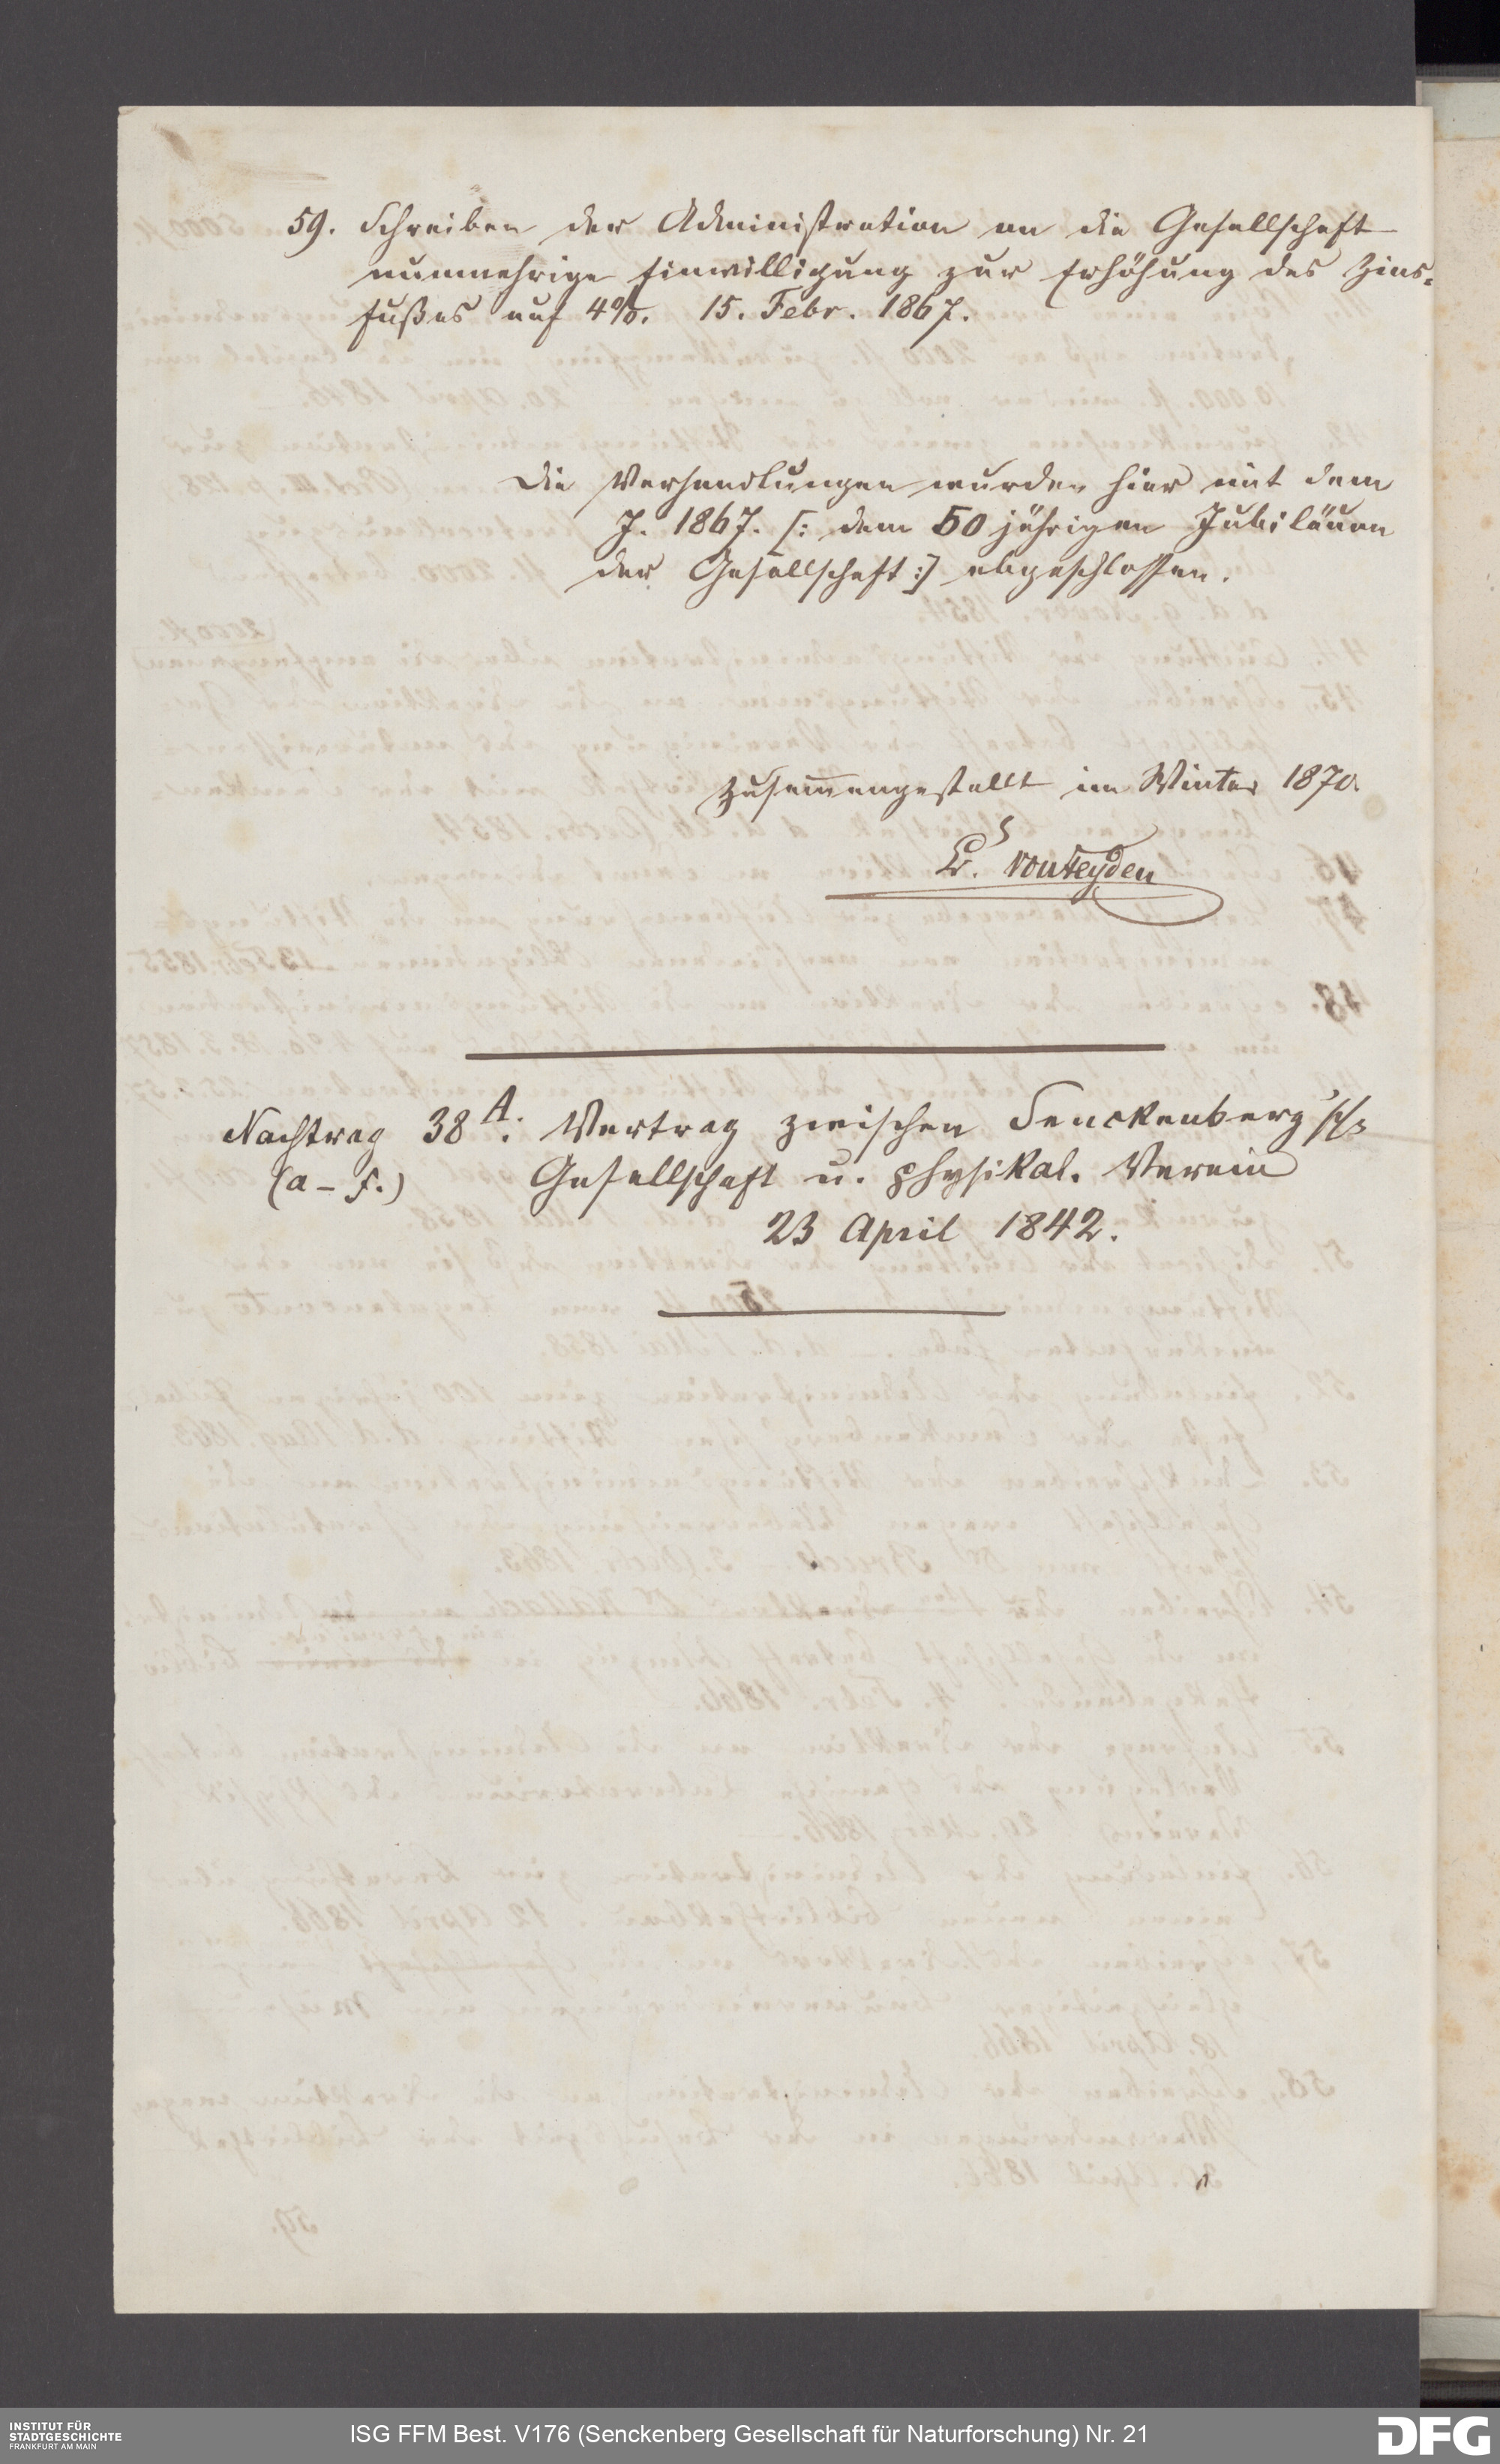 59. Schreiben der Administration an die Gesellschaft
nunmehrige Einwilligung zur Erhöhung des Zins-
fußes auf 4%. 15. Febr. 1867.
Die Verhandlungen wurden hier mit dem
J. 1867. [: dem 50 jährigen Jubiläum
der Gesellschaft :] abgeschlossen.
Zusam̅engestellt im Winter 1870.
Dr. von Heyden
Nachtrag 38 A. Vertrag zwischen Senckenberg'sch
(a - f.) Gesellschaft u. physikal. Verein
23 April 1842.
INSTITUT FÜR
STADTGESCHICHTE
FRANKFURT AM MAIN
ISG FFM Best. V176 (Senckenberg Gesellschaft für Naturforschung) Nr. 21
DFG